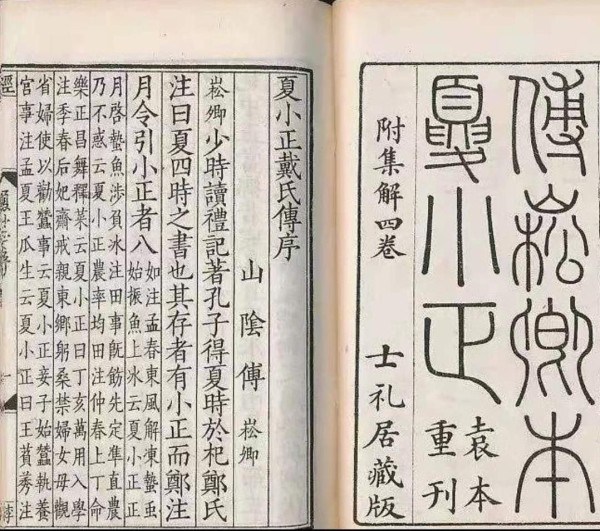 傅崧卿本
夏小正
袁本
重刊
附集解四卷
士礼居藏版
夏小正戴氏傳序
山陰傅崧卿
崧卿少時讀禮記著孔子得夏時於杞鄭氏
注曰夏四時之書也其存者有小正而鄭注
月令引小正者八
如注孟春東風解凍蟄虫
始振魚上氷云夏小正正
月啓蟄魚涉負冰注田事旣飭先定準直農
乃不惑云夏小正農率均田注仲春上丁命
樂正昌舞釋菜云夏小正曰丁亥萬用入學
注季春后妃齋戒親東鄉躬桑禁婦女毋觀
省婦使以勸蠶事云夏小正妾子始蠶執養
宮事注孟夏王瓜生云夏小正曰王萯秀注